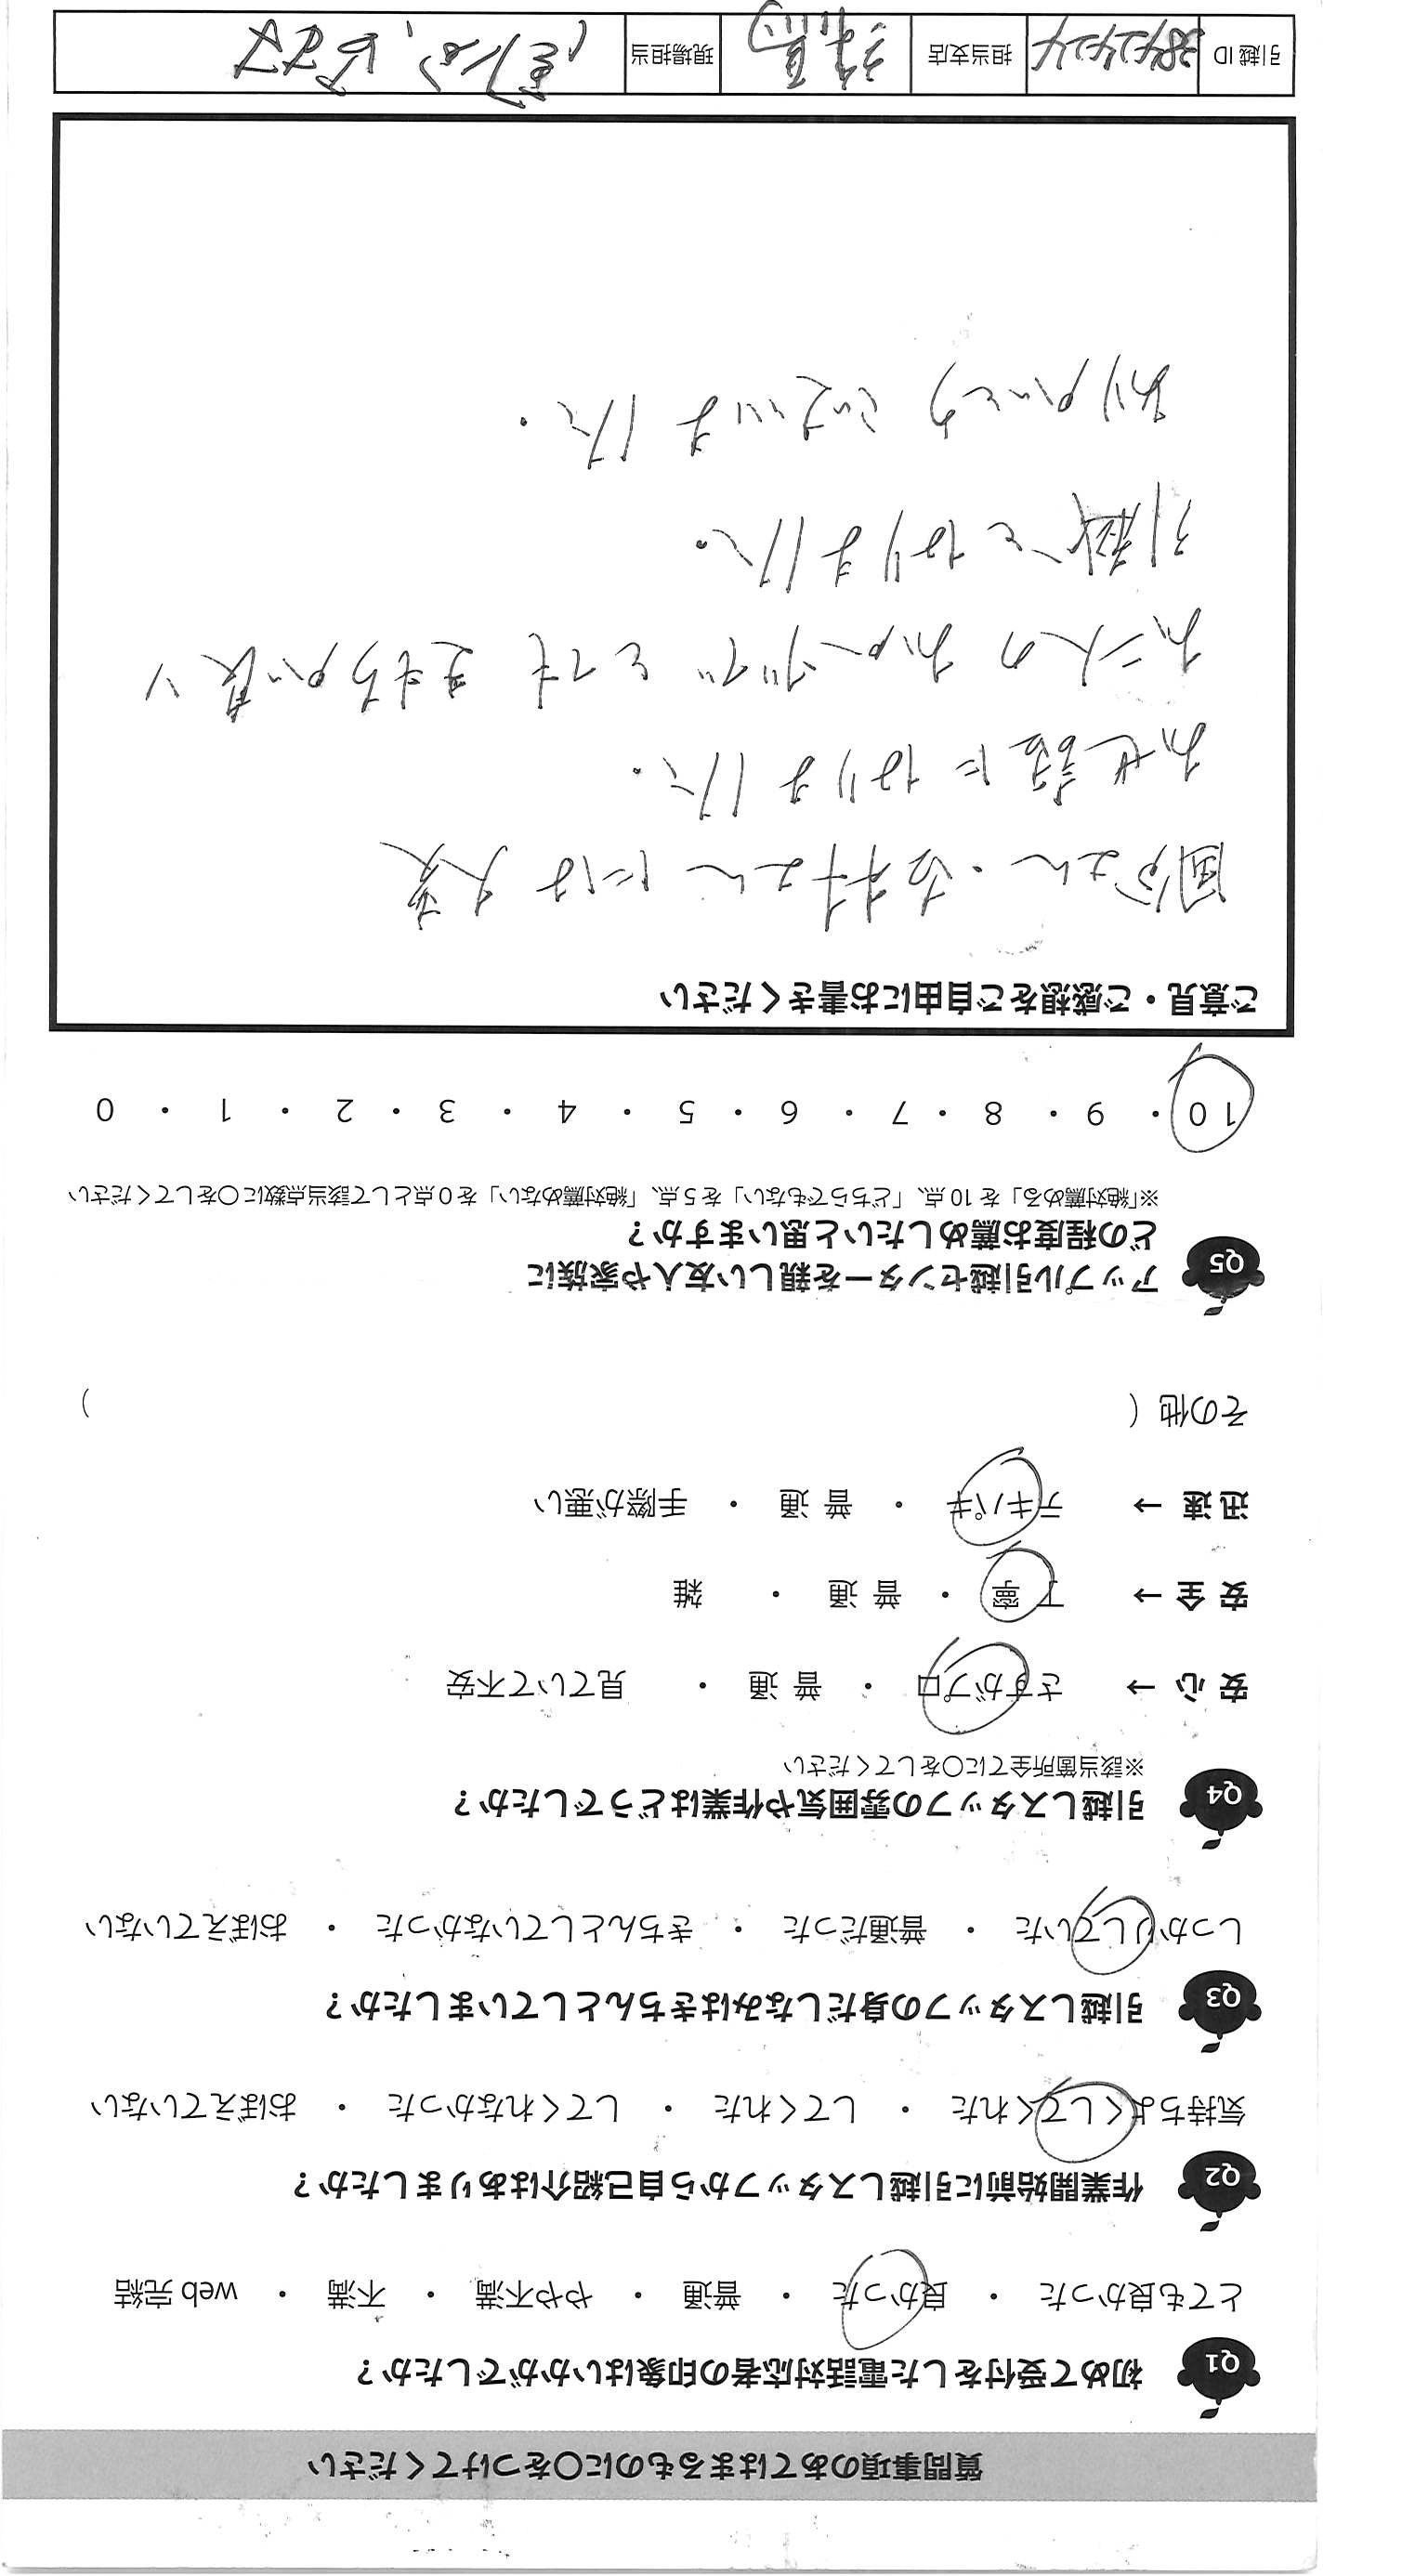 質問事項のあてはまるものに○をつけてください
Q1 初めて受付をした電話対応者の印象はいかがでしたか？
とても良かった ・ 良かった ・ 普通 ・ やや不満 ・ 不満 ・ web 完結
Q2 作業開始前に引越しスタッフから自己紹介はありましたか？
気持ちよくしてくれた ・ してくれた ・ してくれなかった ・ おぼえていない
Q3 引越しスタッフの身だしなみはきちんとしていましたか？
しっかりしていた ・ 普通だった ・ きちんとしていなかった ・ おぼえていない
Q4 引越しスタッフの雰囲気や作業はどうでしたか？
※該当箇所全てに○をしてください
安心 → さすがプロ ・ 普通 ・ 見ていて不安
安全 → 丁寧 ・ 普通 ・ 雑
迅速 → テキパキ ・ 普通 ・ 手際が悪い
その他（ ）
Q5 アップル引越センターを親しい友人や家族に
どの程度お薦めしたいと思いますか？
※「絶対薦める」を 10 点、「どちらでもない」を 5 点、「絶対薦めない」を 0 点として該当点数に○をしてください
10 ・ 9 ・ 8 ・ 7 ・ 6 ・ 5 ・ 4 ・ 3 ・ 2 ・ 1 ・ 0
ご意見・ご感想をご自由にお書きください
国分さん・吉村さんには大変
お世話になりました。
お二人のおかげでとても気持ちが良い
引越となりました。
ありがとうございました。
引越 ID 担当支店 練馬 現場担当